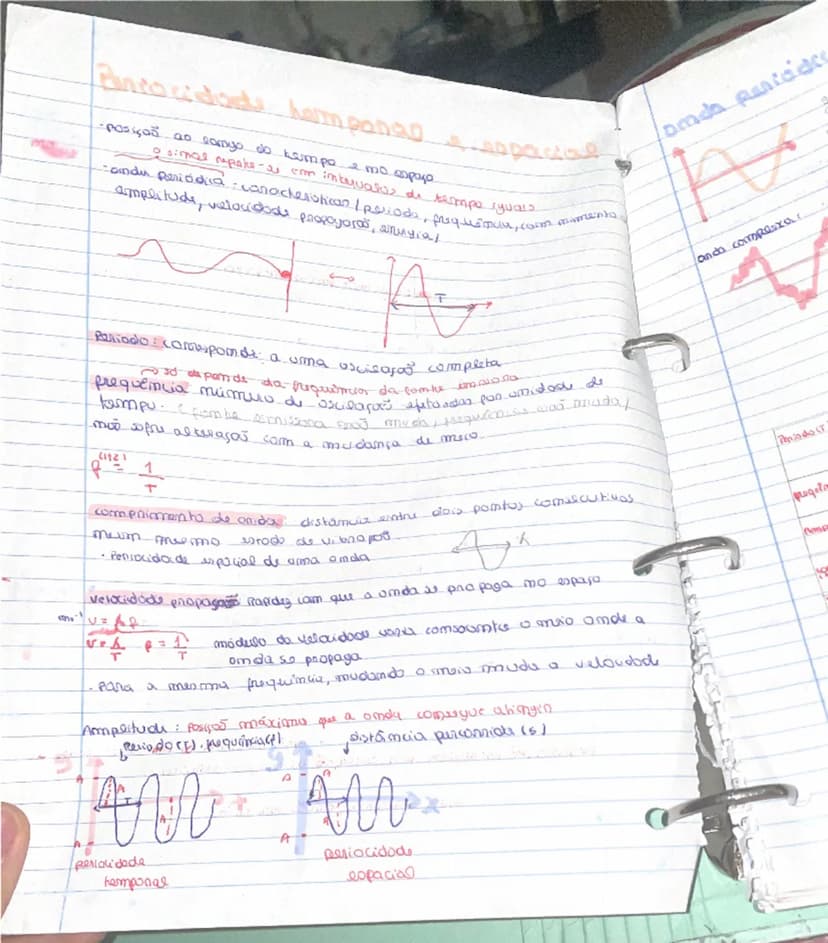 Periocidade temporal e espacial
- posição ao longo do tempo e no espaço
o sinal repete-se com intervalos de tempo iguais
- ondas periódica: características (período, frequência, com
amplitude, velocidade propagação, energia)
T
Período: corresponde: a uma oscilação completa
só depende da frequência da fonte emissora
frequência número de oscilações efetuadas por unidade de
tempo. (fonte emissora não muda, frequência não muda)
não sofre alteração com a mudança de meio.
f(Hz) = 1/T
comprimento de onda: distância entre dois pontos consecutivos
num mesmo estado de vibração.
• Periocidade espacial de uma onda
λ
velocidade propagação rapidez com que a onda se propaga no espaço
v = λf
v = λ/T f = 1/T módulo da velocidade varia consoante o meio onde a
onda se propaga
. Para a mesma frequência, mudando o meio muda a velocidade
Amplitude: Posição máxima que a onda consegue atingir
período(T). frequência(f)
distância percorrida (s)
y
A
A
T
A
A
periocidade
temporal
y
A
A
A
x
periocidade
espacial
onda periódica
onda complexa: